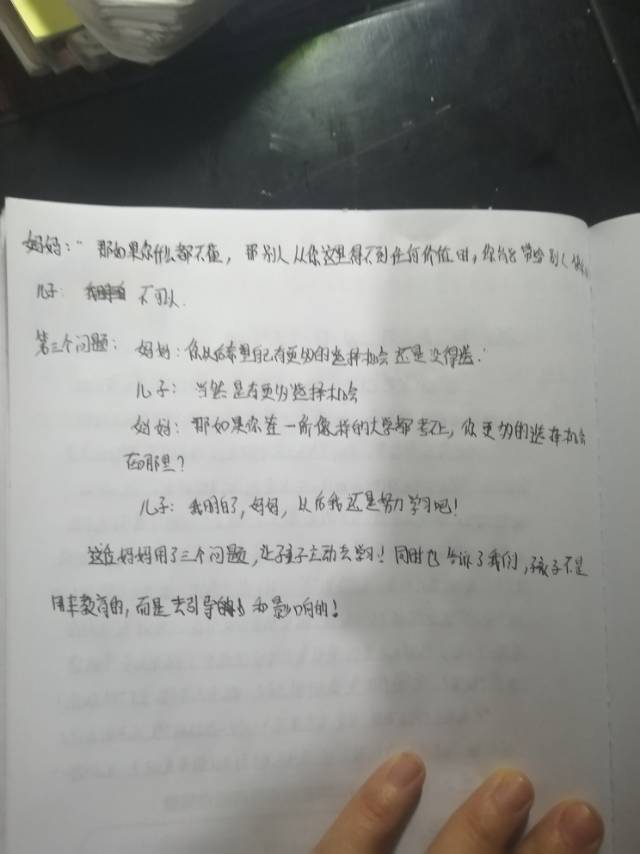 妈妈：“那如果你什么都不值，那别人从你这里得不到任何价值时，你能 带给别人
儿子： 不可以.
第三个问题： 妈妈：你以后希望自己有更多的选择机会还是没得选.
儿子： 当然是有更多选择机会
妈妈：那如果你连一所像样的大学都考不上，你更多的选择机会
在哪里？
儿子：我明白了，妈妈，以后我还是努力学习吧！
这位妈妈用了三个问题，让孩子主动去学习！同时也告诉了我们，孩子不是
用来教育的，而是去引导 和影响的！